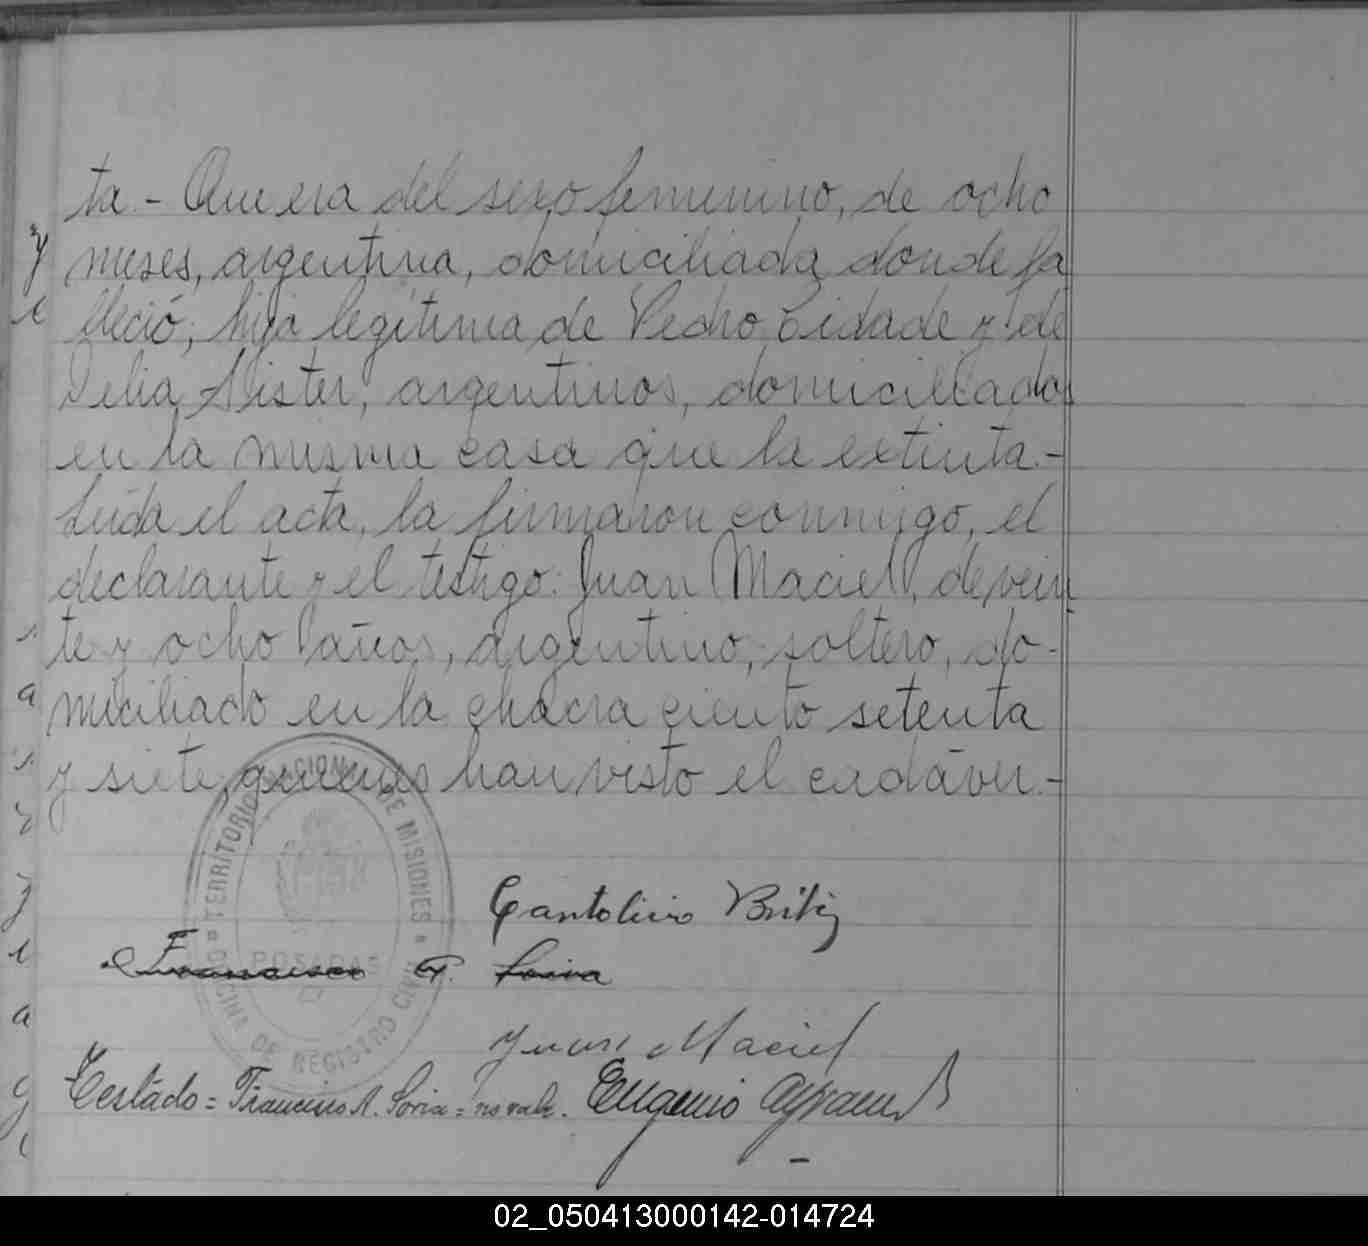 ta.- Que era del sexo femenino, de ocho
meses, argentina, domiciliada donde fa
lleció, hija legítima de Pedro Cidade y de
Delia Nister, argentinos, domiciliados
en la misma casa que la extinta.-
Leída el acta, la firmaron conmigo, el
declarante y el testigo: Juan Maciel, de vein
te y ocho años, argentino, soltero, do-
miciliado en la chacra ciento setenta
y siete, quienes han visto el cadáver.-
TERRITORIO NACIONAL DE MISIONES
OFICINA DE REGISTRO CIVIL
POSADAS
Cantolicio Britez
Francisco A. Soria
Juan Maciel
Testado = Francisco A. Soria = no vale. Eugenio
02_050413000142-014724